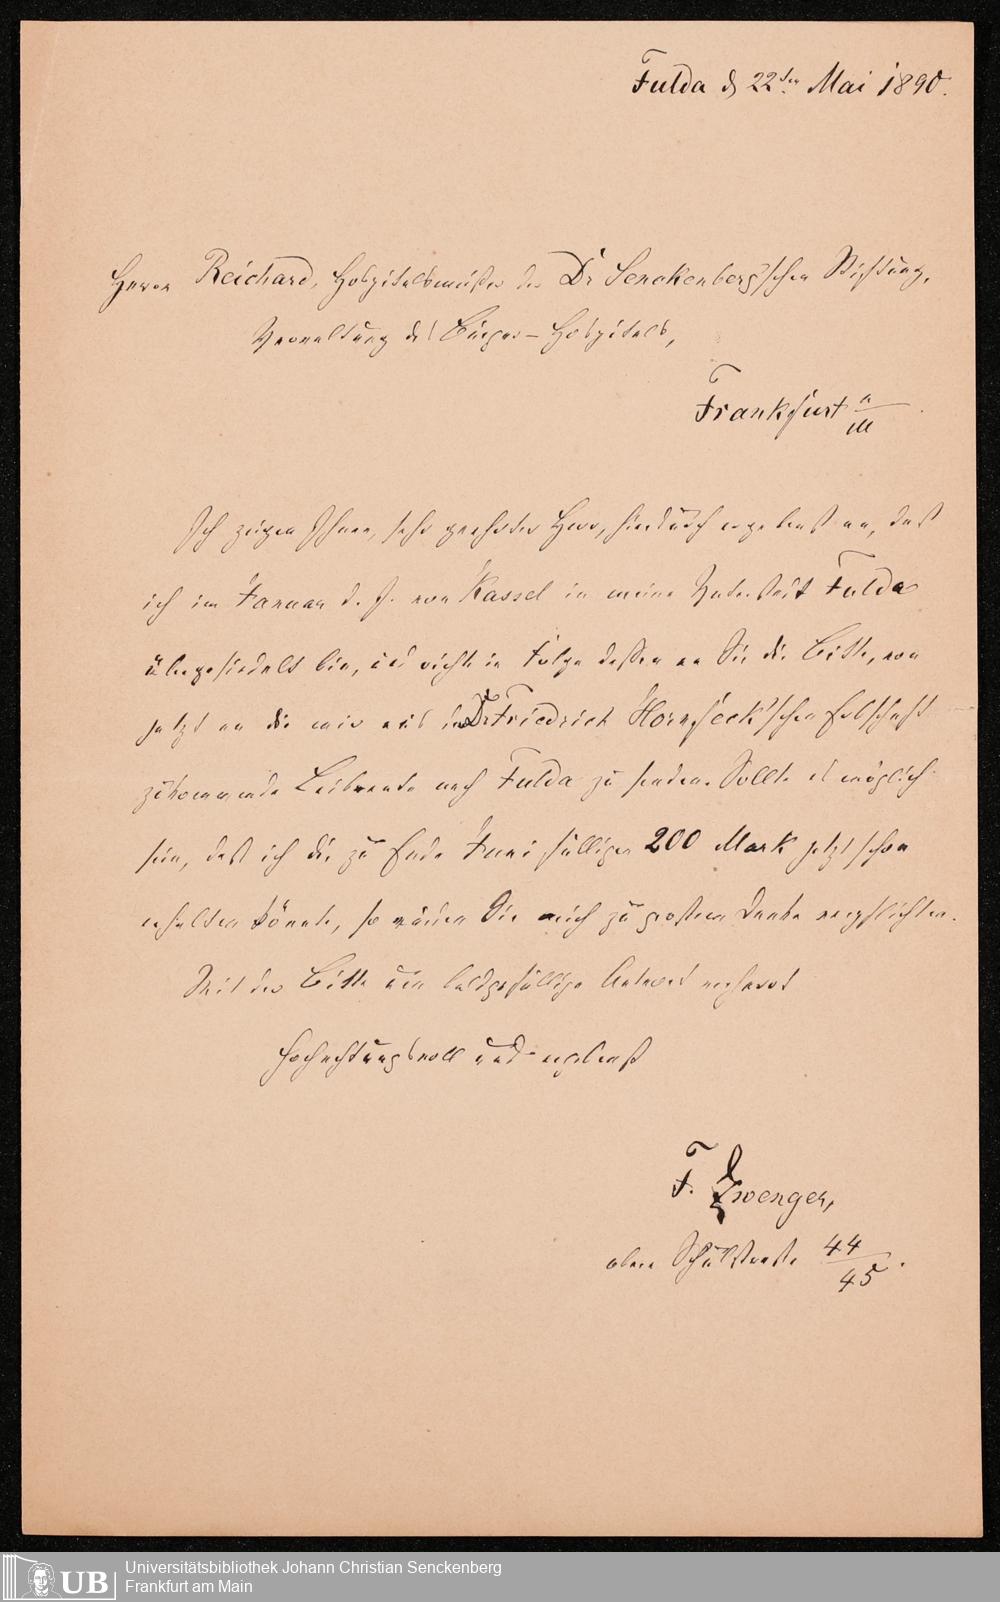 Fulda d 22ten Mai 1890.
Herrn Reichard, Hospitalsmeister der Dr Senckenberg'schen Stiftung,
Verwaltung des Bürger-Hospitals,
Frankfurt a/M
Ich zeigen Ihnen, sehr geehrter Herr, hierdurch ergebenst an, daß
ich im Januar d. J. von Kassel in meine Vaterstadt Fulda
übergesiedelt bin, und richte in Folge dessen an Sie die Bitte, von
jetzt an die mir aus der Dr Friedrich Hornfeck'schen Erbschaft
zukommende Leibrente nach Fulda zu senden. Sollte es möglich
sein, daß ich die zu Ende Juni fälligen 200 Mark jetzt schon
erhalten könnte, so würden Sie mich zu großem Danke verpflichten.
Mit der Bitte um baldgefällige Antwort verharrt
hochachtungsvoll und ergebenst
F. Zwenger,
obere Schulstraße 44/45.
Universitätsbibliothek Johann Christian Senckenberg
Frankfurt am Main
UB